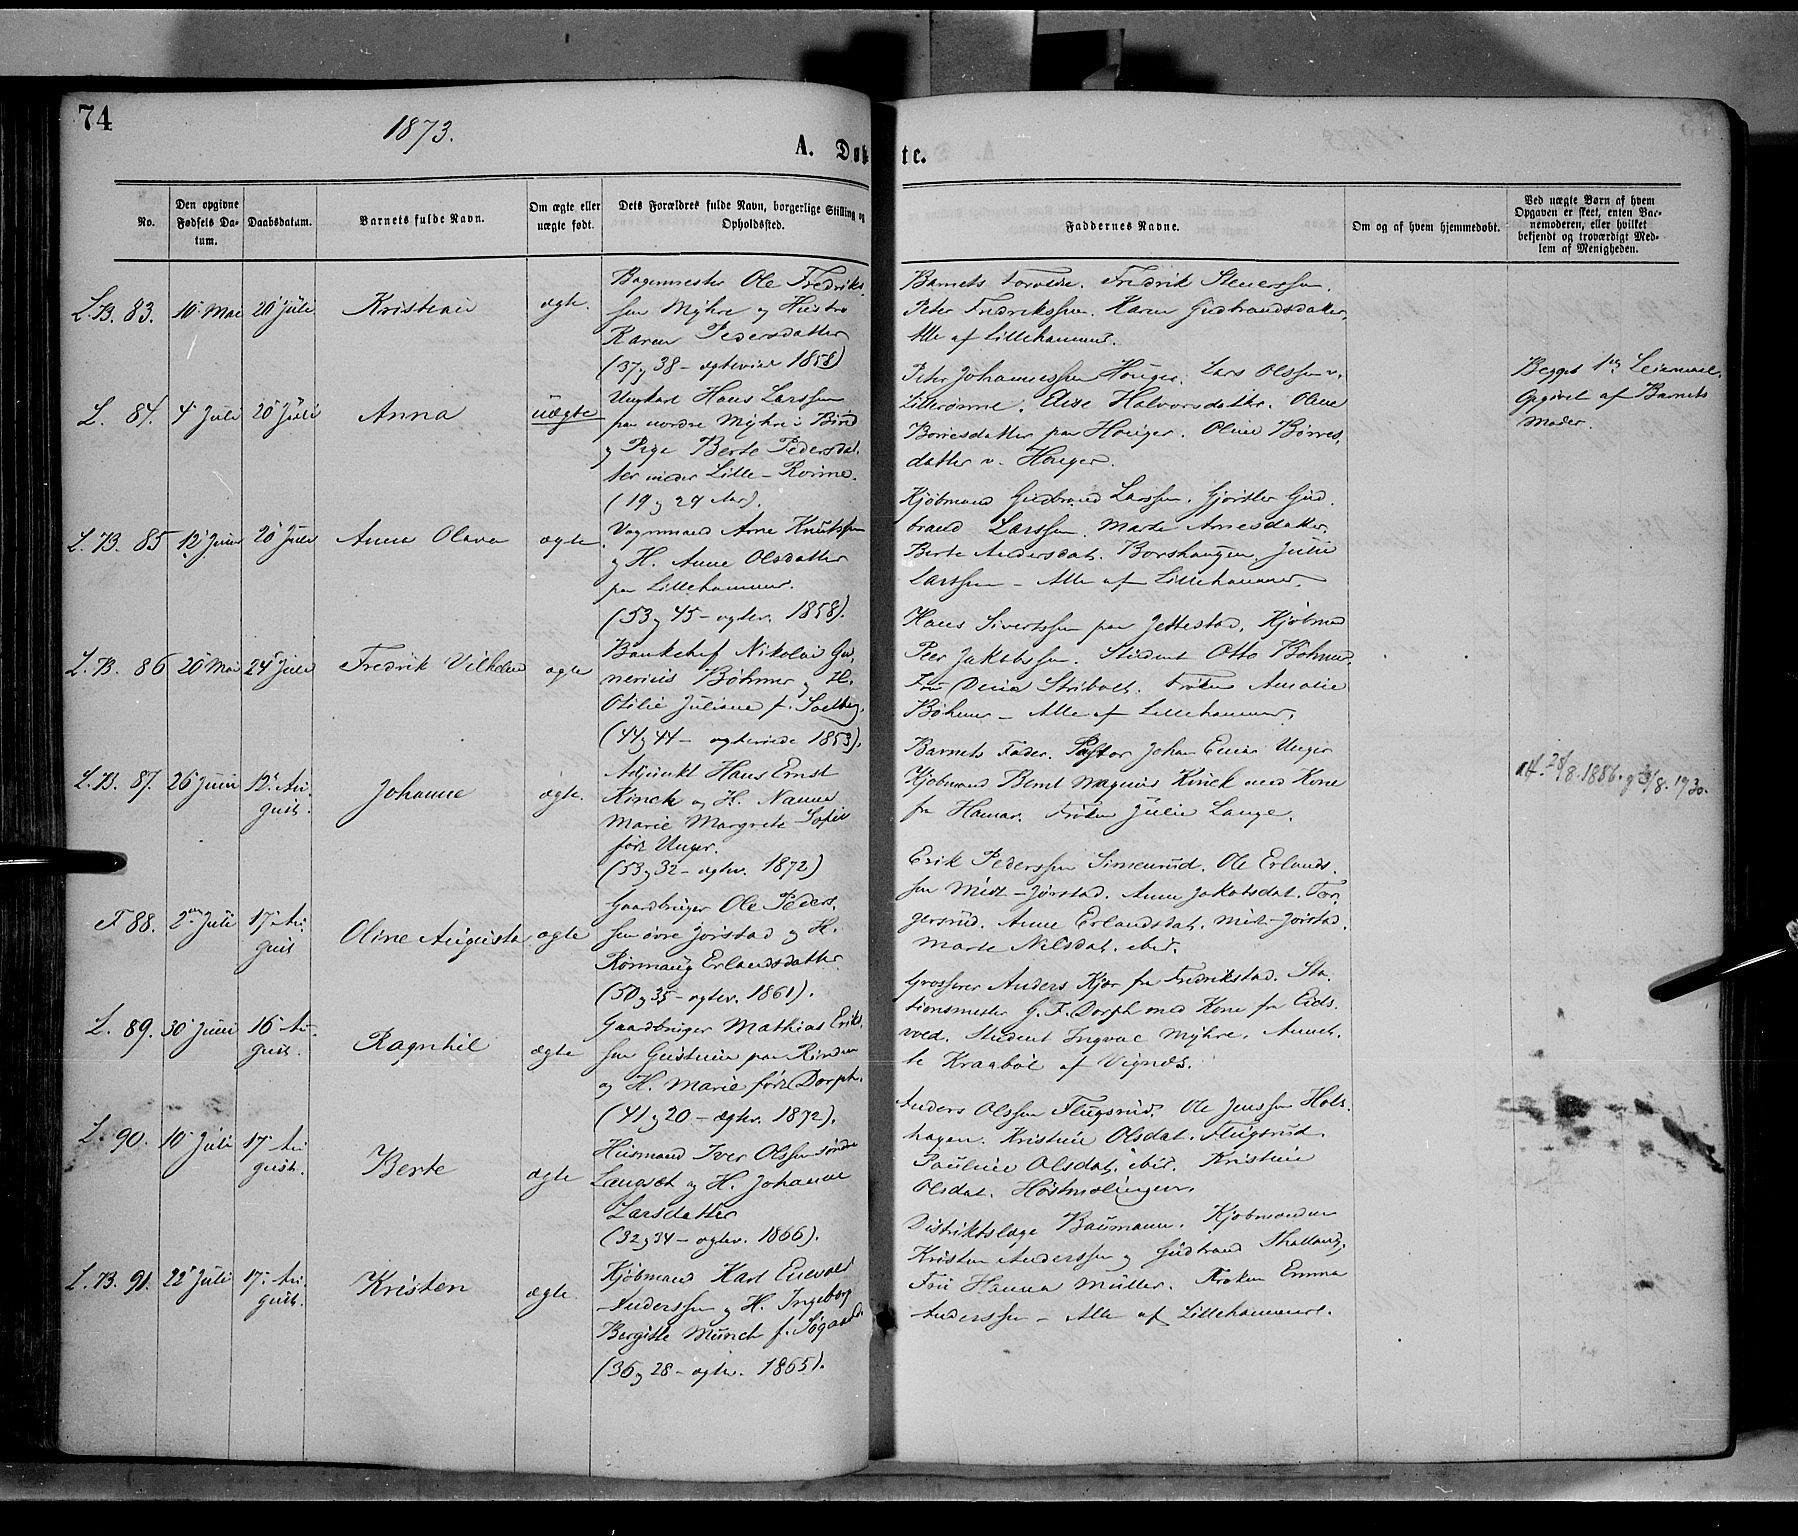 74
1873.
A. Døbte.
No.
Den opgivne Fødsels Datum.
Daabsdatum.
Barnets fulde Navn.
Om ægte eller uægte født.
Dets Forældres fulde Navn, borgerlige Stilling og Opholdssted.
Faddernes Navne.
Om og af hvem hjemmedøbt.
Ved uægte Børn af hvem Opgaven er skeet, enten Barnemoderen, eller hvilket bekjendt og troværdigt Medlem af Menigheden.
L.B. 83. 10 Mai 20 Juli
ægte.
Bagermester Ole Fredriks-
sen Myhre og Hustro
Karen Pedersdatter
(37 og 38 – ægteviet 1858)
Barnets Forældre. Fredrik
Peter Frederikssen. Karen Gudbrandsdatter,
Alle af Lillehammer.
L. 84. 4 Juli 20 Juli
Anna
uægte
Ungkarl Hans Larssen
paa nordre Myhre i Biri
og Pige Berte Pedersdat-
ter under Lille-Rønne.
(19 og 29 Aar).
Peter Johannessen Houger. Lars Olssen v.
Lillerønne. Elise Halvorsdatter. Oline
Borresdatter paa Houger. Oline Børres-
datter v. Houger.
Begges 1ste Leiermaal.
Opgivet af Barnets
Moder.
L.B. 85 12 Juni 20 Juli
Anna Olava
ægte
Vognmand Arne Knutssen
og H. Anne Olsdatter
paa Lillehammer.
(53 og 45 – ægtev. 1858).
Kjøbmand Gudbrand Larssen. Gjørtler Gud-
brand Larssen. Marte Arnesdatter.
Berte Andersdat. Borshaugen. Julie
Larssen – Alle af Lillehammer.
L.B. 86 20 Mai 24 Juli
Fredrik Vilhelm
ægte
Bankchef Nikolai Gu-
nerius Bøhmer og H.
Otilie Juliane f.
(44 og 44 – ægteviede 1853).
Hans Sivertssen paa Jettestad. Kjøbmd
Peer Jakobssen. Student Otto Bøhmer.
Fru Stribolt. Frøken Amalie
Bøhmer – Alle af Lillehammer.
L.B. 87. 26 Juni 12 Au-
gust.
Johanne
ægte.
Adjunkt Hans Ernst
Kinck og H. Nanna
Marie Margrete Sofie
født Unger.
(53 og 32 – ægtev. 1872)
Barnets Fader. Pastor Johan Unger
Kjøbmand Bernt Magnus Kinck med Kone
fr Hamar. Frøken Julie Lange.
28/8. 1886. 1930.
F 88. 2 Juli 17 Au-
gust
Oline Augusta
ægte
Gaardbruger Ole Peders-
sen øvre Jørstad og H.
Rønnaug Erlandsdatter
(50 og 35 – ægtev. 1861).
Erik Pederssen Simenrud. Ole Erlands-
sen Midt-Jørstad. Anne Jakobsdat. Tor-
gersrud. Anne Erlandsdat. Midt-Jørstad.
Marte Nilsdat. ibid.
L. 89. 30 Juni 16 Au-
gust.
Ragnhil
ægte
Gaardbruger Mathias Erik-
sen
og H. Marie født Dorph.
(41 og 20 – ægtev. 1872).
Grosserer Anders Kjær fra Fredrikstad. Sta-
tionsmester G. F. Dorph med Kone fra Eids-
vold. Student Ingval Myhre. Annet-
te Kraabøl af Vignæs.
L. 90. 10 Juli 17 Au-
gust.
Berte
ægte
Husmand Iver Olssen søndre
Langsæt og H. Johanne
Larsdatter
(32 og 34 – ægtev. 1866).
Anders Olssen Flugsrud. Ole Jenssen Hols-
hagen. Kristine Olsdat. Flugsrud.
Pauline Olsdat. ibid. Kristine
Olsdat.
L.B. 91. 22 Juli 17 Au-
gust.
Kristen
ægte
Kjøbmand Karl Enevold
Anderssen og H. Ingeborg
Bergitte Munch f. Søgaard.
(36 og 28 – ægtev. 1865).
Distriktslæge Baumann. Kjøbmændene
Kristen Anderssen og Gudbrand
Fru Hanna Müller. Frøken Emma
Anderssen – Alle af Lillehammer.